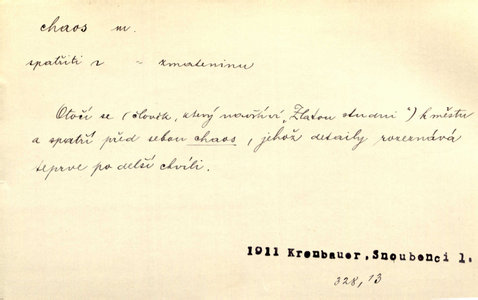 chaos m.
spatřiti = zmateninu
Otočí se (člověk, který navštíví „Zlatou studni") k městu
a spatří před sebou chaos, jehož detaily rozeznává
teprve po delší chvíli.
1911 Kronbauer, Snoubenci 1.
328, 13